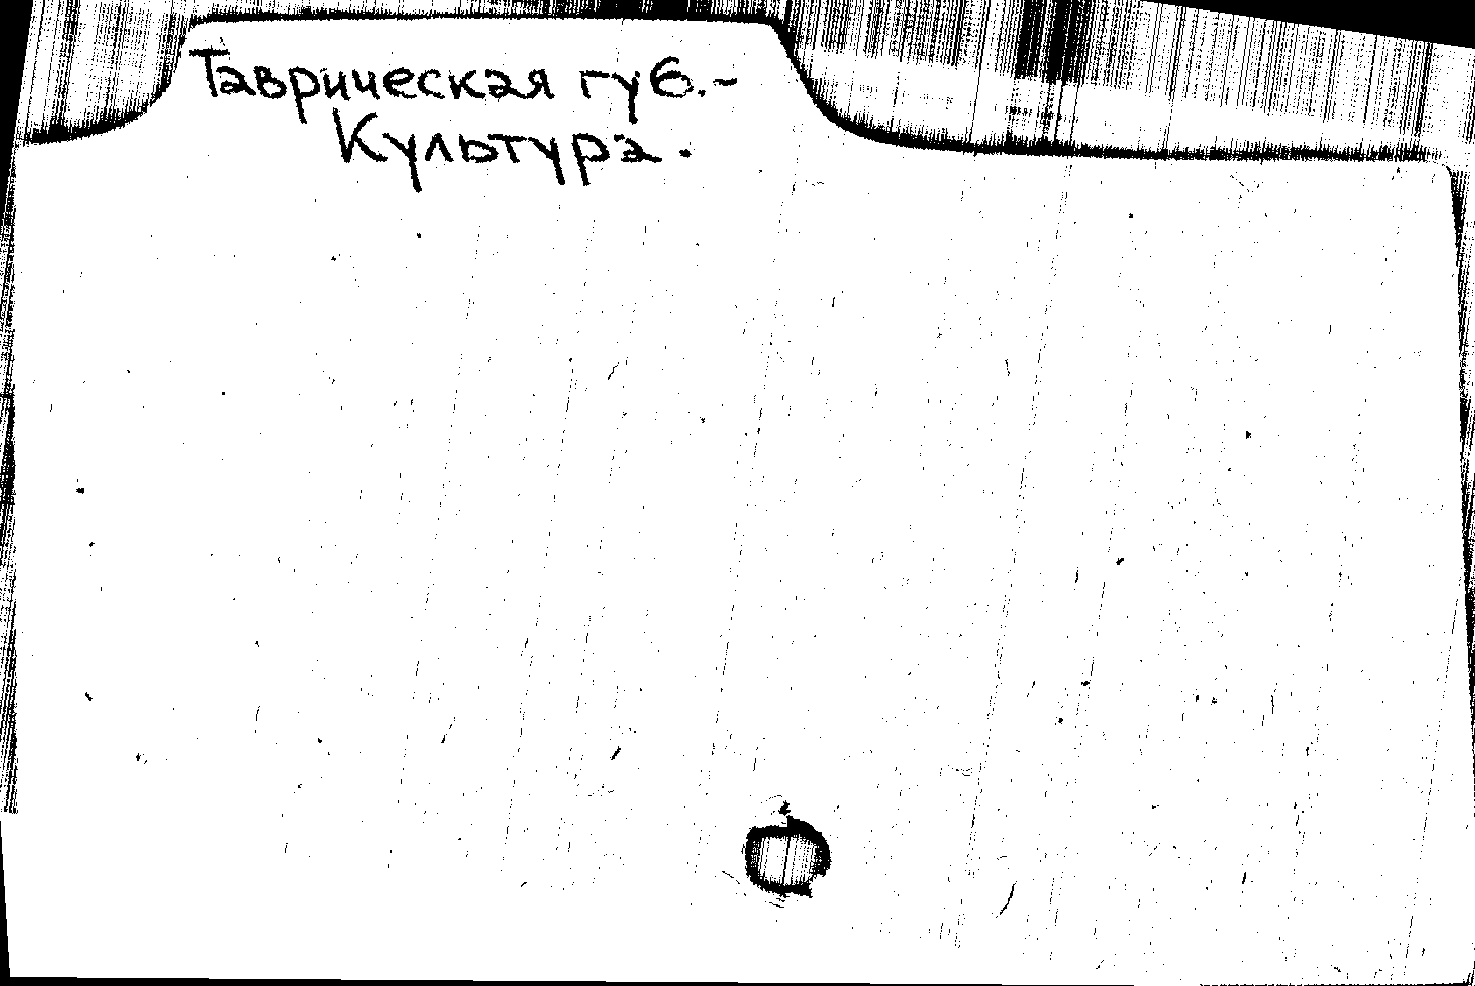 Таврическая губ.-
Культура.